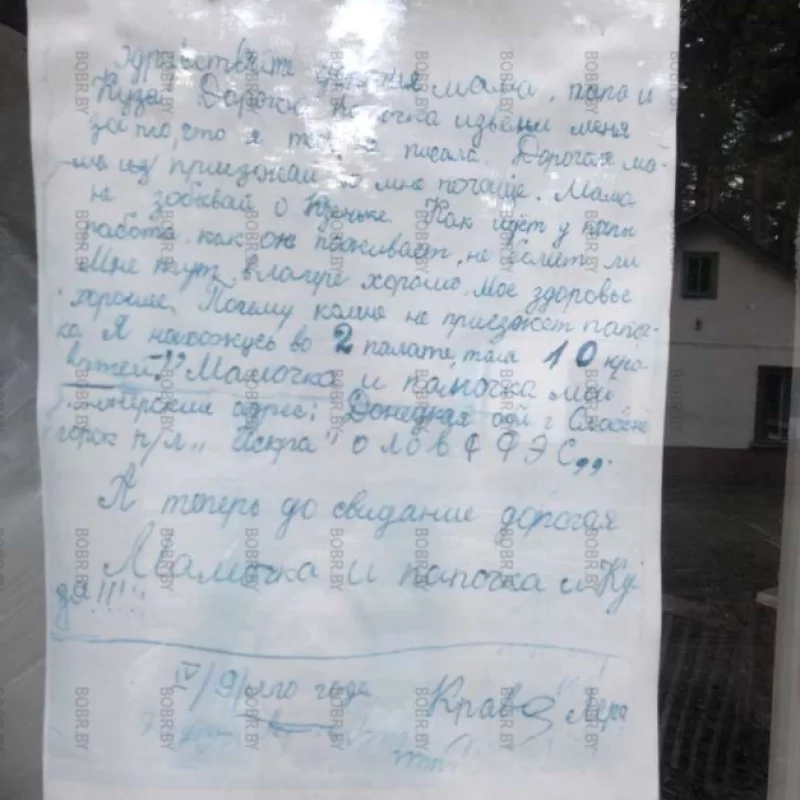 здравствуйте мама, папа и
Кузя. Дорогая извени меня
за то, что я не писала. Дорогая ма-
ма приезжай мне почаще. Мама
не зобывай о Кузеньке. Как идёт у папы
работа как он поживает, не болеет ли
Мне тут в лагере хорошо. Мое здоровье
хорошие. Почему комне не приезжет папо-
ка Я нахожусь во 2 палате, там 10 кро-
ватей." Мамочка и папочка мой
адрес: Донецкая обл г
горск п/л „Искра"
А теперь до свидание дорогая
Мамочка и папочка и Ку-
зя!!!!!
IV/91 ого года Лера
BOBR.BY